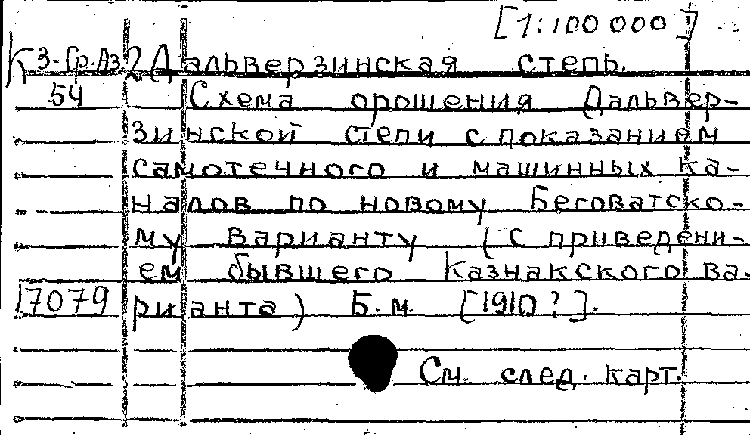 [1:100 000]
К 3-Ср.Аз 2 Дальверзинская степь.
54 Схема орошения Дальвер-
зинской степи с показанием
самотечного и машинных ка-
налов по новому Беговатско-
му варианту (с приведени-
ем бывшего Казнакского ва-
17079 рианта) Б.м. [1910?].
См. след. карт.